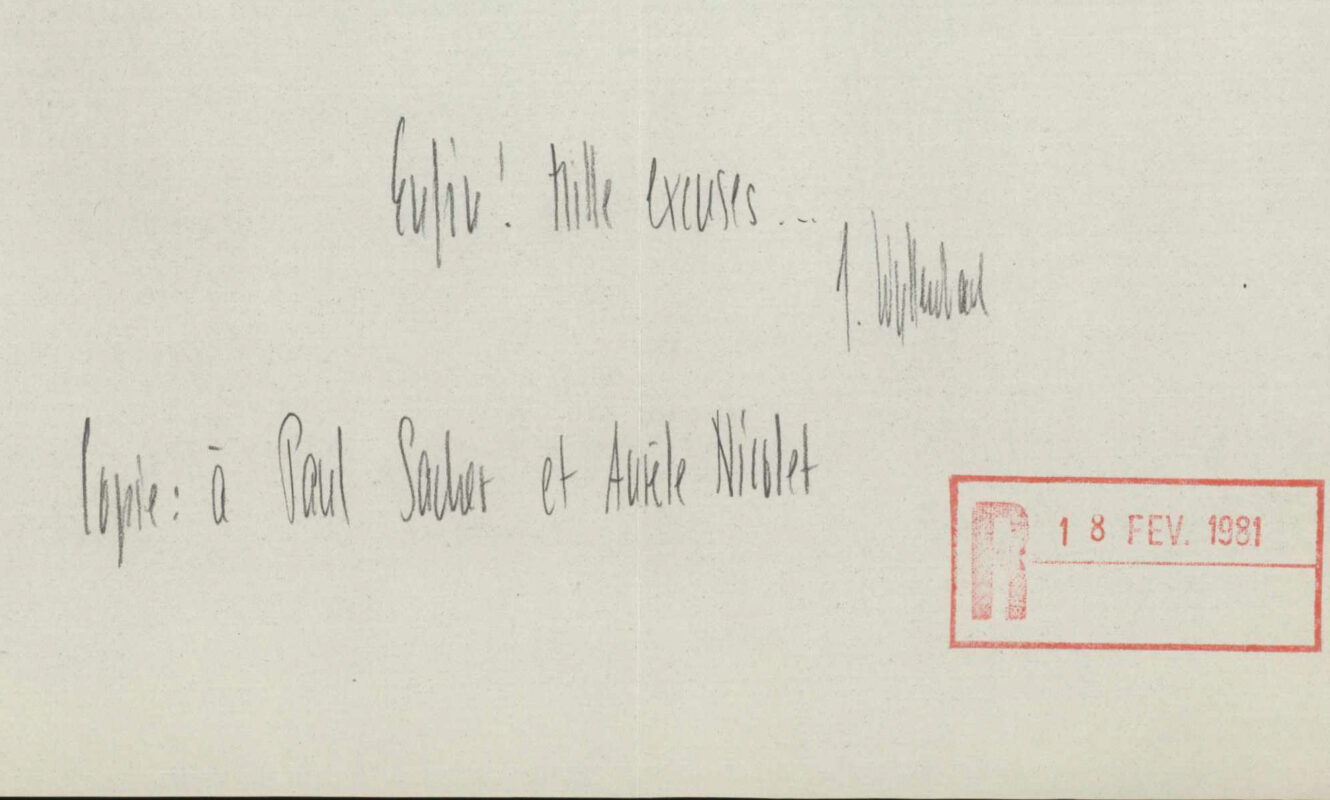 Enfin! Mille excuses...
J. Wyttenbach
Copie: à Paul Sacher et Aurèle Nicolet
R 18 FEV. 1981